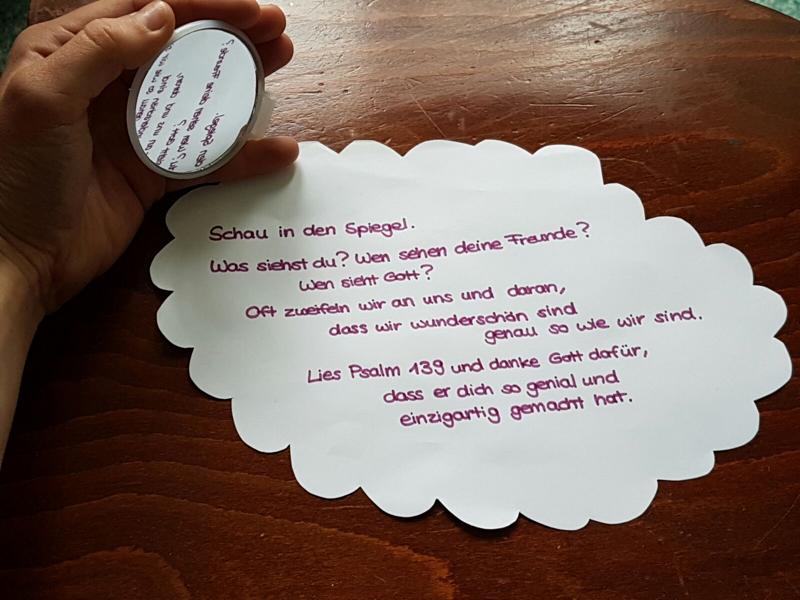 Schau in den Spiegel.
Was siehst du? Wen sehen deine Freunde?
Wen sieht Gott?
Oft zweifeln wir an uns und daran,
dass wir wunderschön sind
genau so wie wir sind.
Lies Psalm 139 und danke Gott dafür,
dass er dich so genial und
einzigartig gemacht hat.